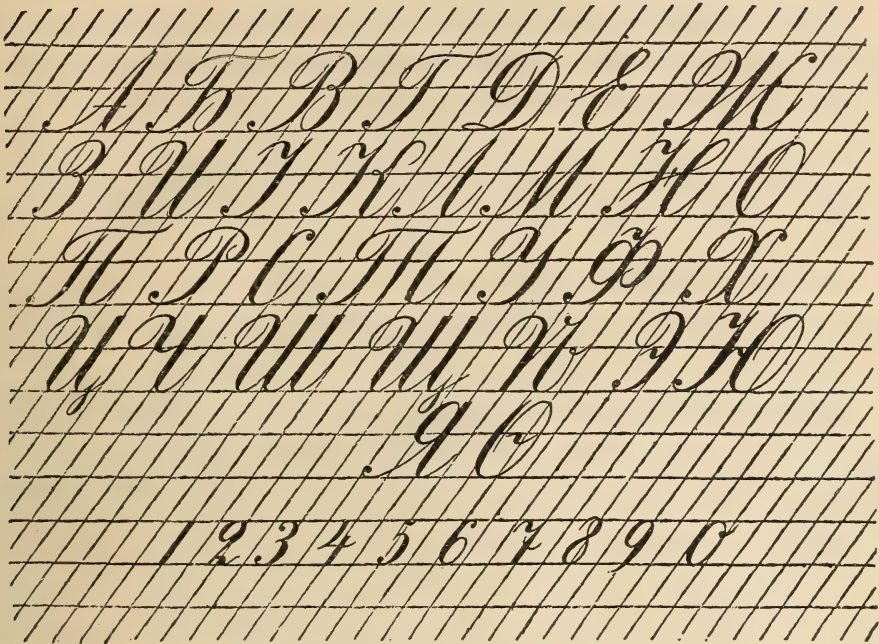 А Б В Г Д Е Ж
З И І К Л М Н О
П Р С Т У Ф Х
Ц Ч Ш Щ Ѣ Э Ю
Я Ѳ
1 2 3 4 5 6 7 8 9 0